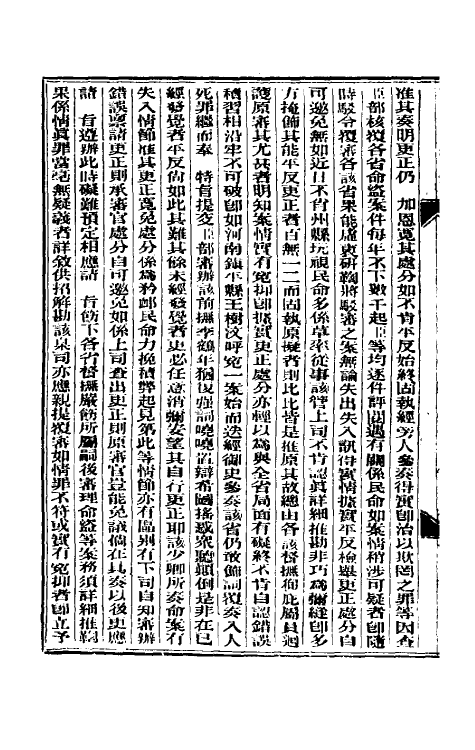 准其奏明更正仍　加恩寬其處分如不肯平反始終固執經旁人參奏得實卽治以欺罔之罪等因查
臣部核覆各省命盜案件每年不下數千起臣等均逐件詳閱遇有關係民命如案情稍涉可疑者卽隨
時駁令覆審各該省果能虛衷研鞫將駁審之案無論失出失入訊得實情據實平反檢舉更正處分自
可邀免無如近日不肖州縣玩視民命多係草率從事該管上司不肯認眞詳細推勘非巧爲彌縫卽多
方掩飾其能平反更正者百無一二而固執原擬者則比比皆是推原其故總由各該督撫御庇屬員迴
護原審其尤甚者明知案情實有冤抑卽據實更正處分亦輕以爲與全省局面有礙終不肯自認錯誤
積習相沿牢不可破卽如河南鎭平縣王樹汶呼冤一案始而迭經御史參奏該省仍敢飾詞覆奏入人
死罪繼而奉　特旨提交臣部審辦該前撫李鶴年猶復强詞曉曉置辯希圖搖惑衆聽顚倒是非在已
經發覺者平反尙如此其難其餘未經發覺者更必任意消彌安望其自行更正耶該少卿所奏命案有
失入情節准其更正寬免處分係爲矜卹民命力挽積弊起見第此等情節亦有區別有下司自知審辦
錯誤稟請更正則承審官處分自可邀免如係上司查出更正則原審官豈能免議倘在具奏以後更應
請　旨遵辦此時礙難預定相應請　旨飭下各省督撫嚴飭所屬嗣後審理命盜等案務須詳細推鞫
果係情眞罪當毫無疑義者詳敘供招解勘該臬司亦應親提覆審如情罪不符或實有冤抑者卽立予